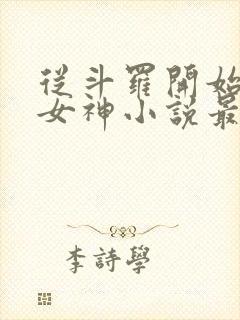 從斗羅開始
女神小說最
李詩學